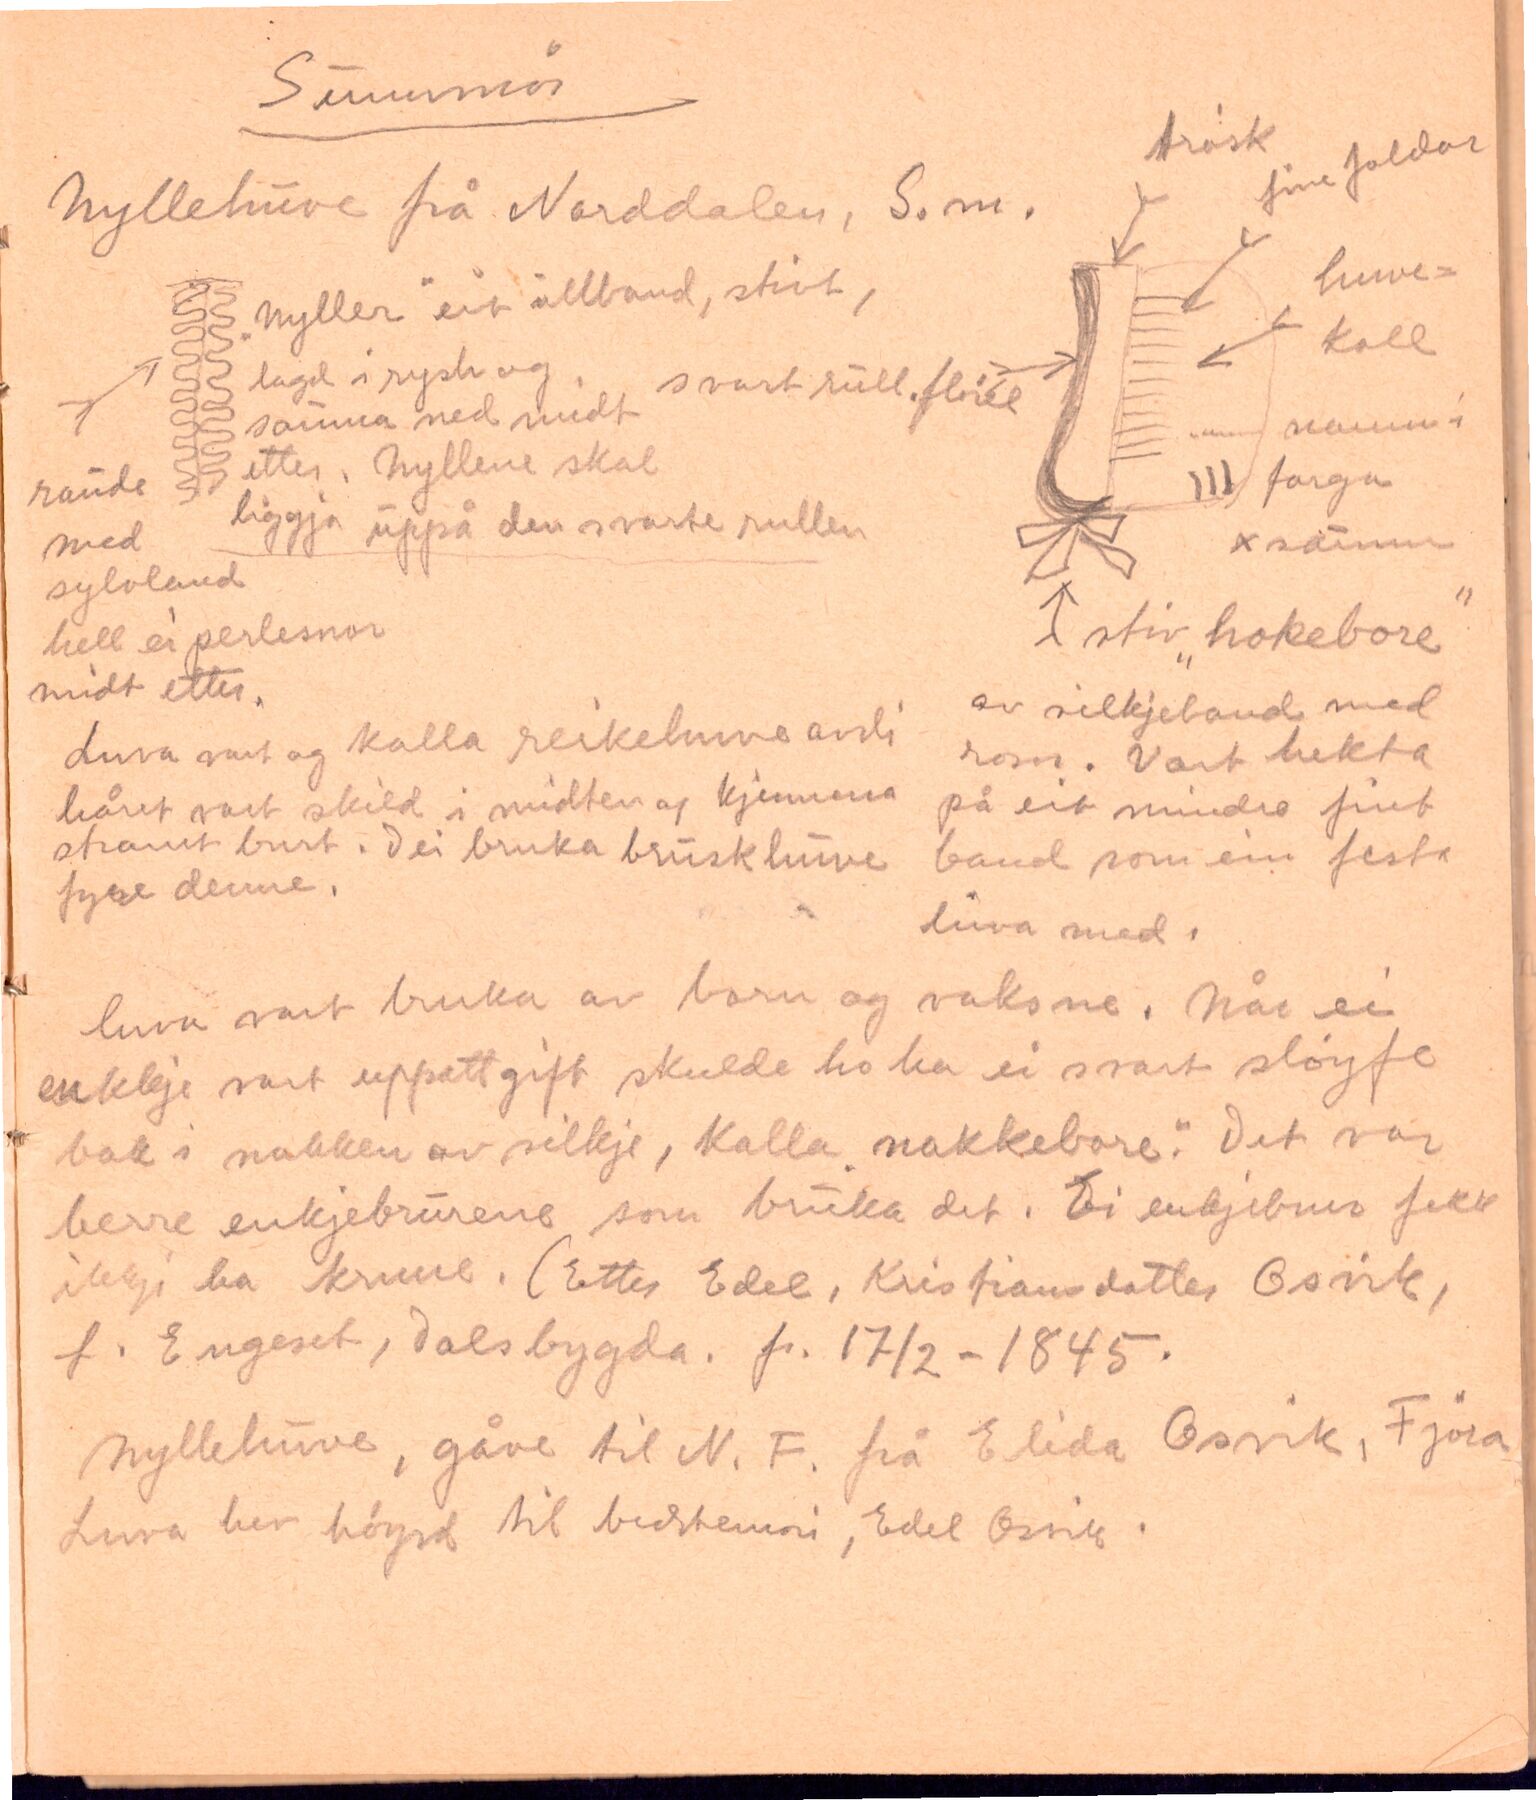 Sunnmör
Nyllehuve frå Norddalen, S.m.
"Nyller" eit ullband, stivt,
lagd i rysh og
sauma ned midt
etter. Nyllene skal
liggja uppå den svarte rullen
raude
med
sylvband
hell ei perlesnor
midt etter.
svart rull. flöiel
trask
fine foldar
huve=
koll
saum i
farga
x saum
stiv "hokebore"
av silkjeband med
rosor. Vart hekta
på eit mindre fint
band som ein festa
luva med.
Luva vart og kalla reikehuve avdi
håret vart skild i midten og kjemma
stramt burt. Dei bruka brusk huve
fyre denne.
Luva vart bruka av born og vaksne. Når ei
enkkje vart uppatt gift skulde ho ha ei svart slöyfe
bak i nakken av silkje, kalla "nakkebore". Det var
berre enkjebrurene som bruka det. Ei enkjebrur fekk
ikkje ha krune. (Etter Edel, Kristiansdatter Osvik,
f. Engeset, Dalsbygda. f. 17/2 - 1845.
Nyllehuve, gåve til N. F. frå Elida Osvik, Fjöra
Luva hev höyrd til bedstemori, Edel Osvik.